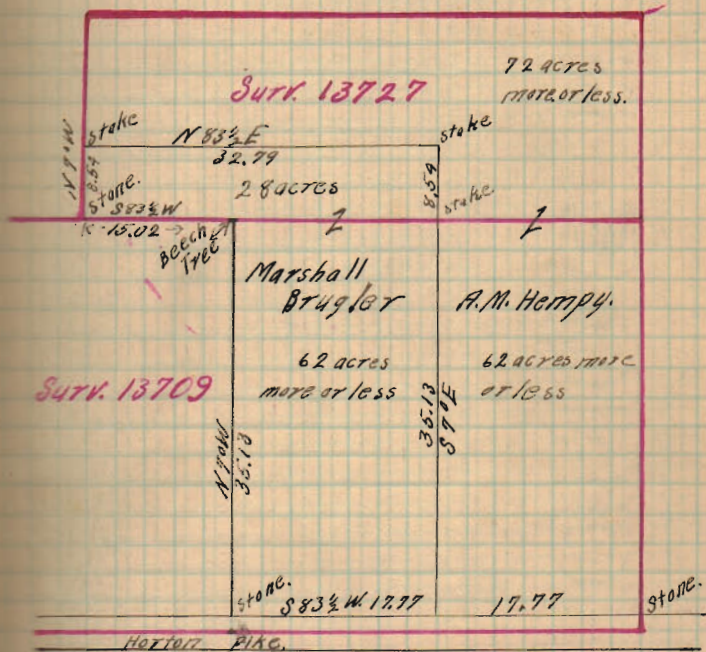 72 acres
more or less.
Surv. 13727
stake
N 83½ E
stake
32.79
N 7° W
8.54
28 acres
8.54
Stone.
stake
S 83½ W
15.02
Beech
Tree
1
1
Marshall
Brugler
A.M. Hempy.
62 acres
more or less
62 acres more
or less
Surv. 13709
N 7° W
35.13
35.13
S 7° E
Stone.
S 83½ W. 17.77
17.77
Stone.
Horton Pike.